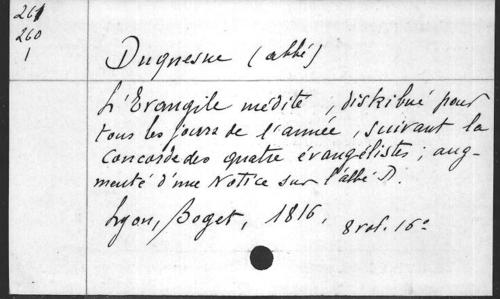 261
260
1
Duquesne (abbé)
L'Evangile médité, distribué pour
tous les jours de l'année, suivant la
Concorde des quatre évangélistes; aug-
menté d'une Notice sur l'abbé D.
Lyon, Boget, 1816, 8 vol. 16°